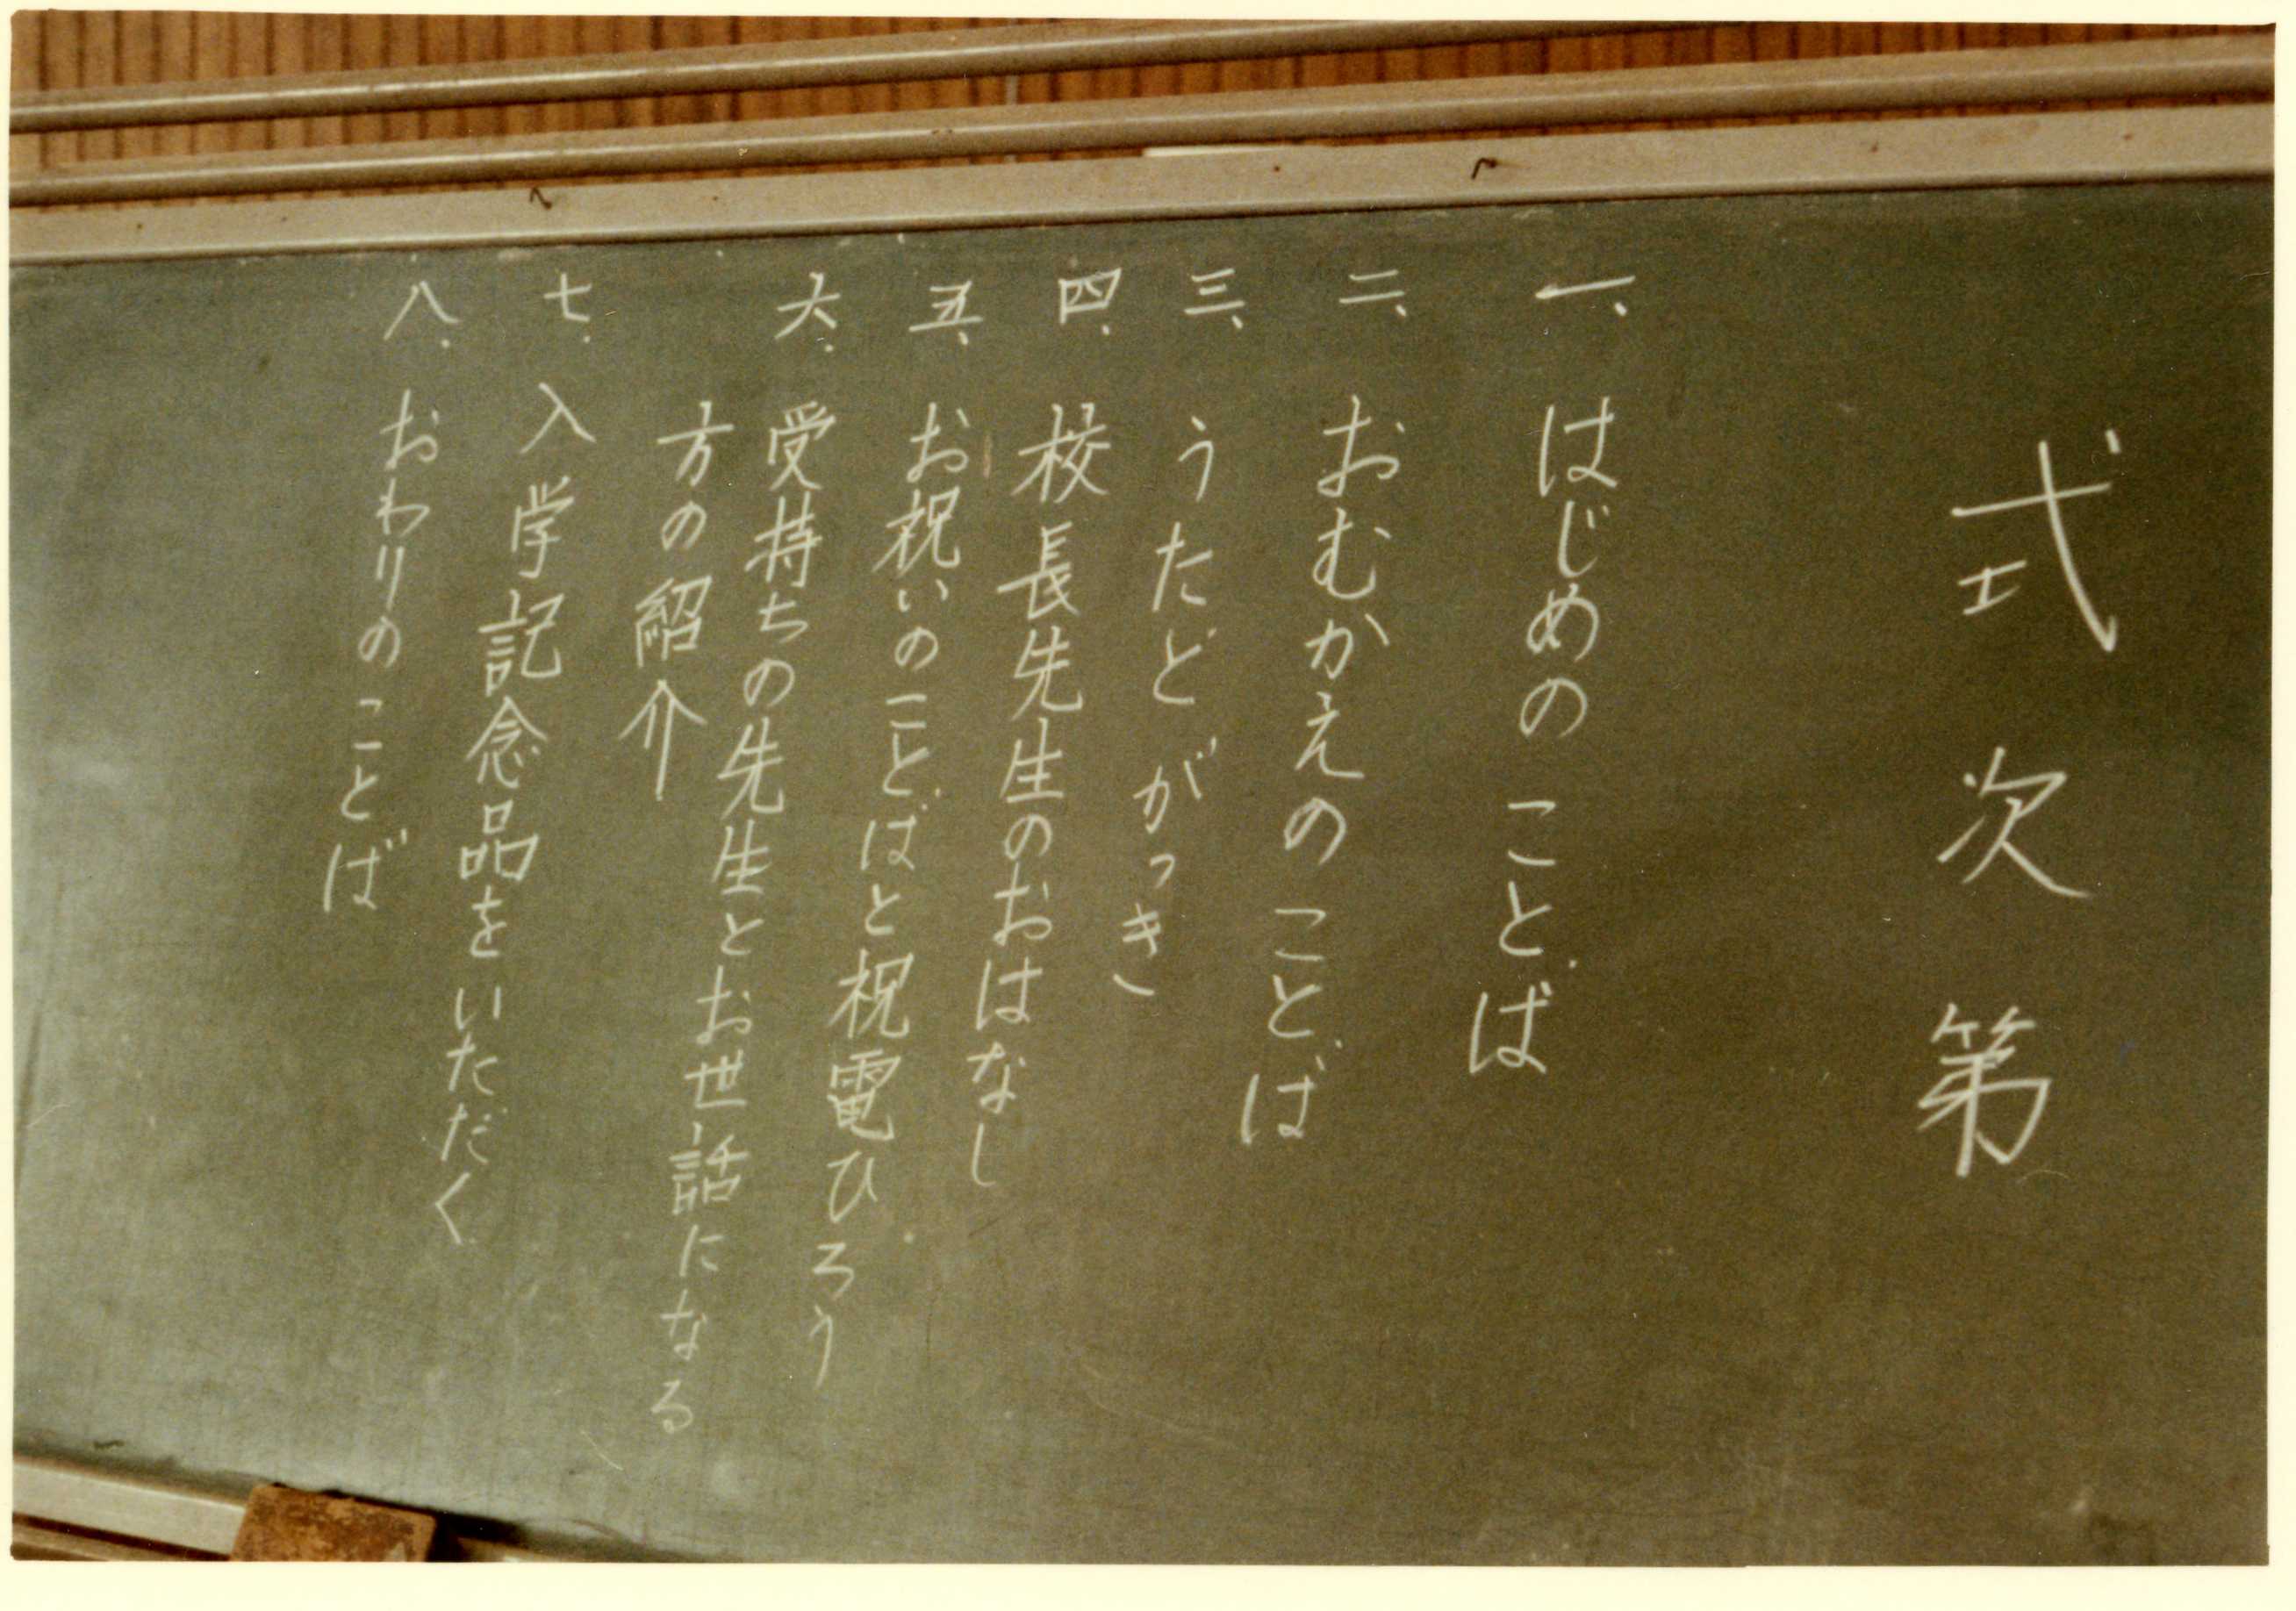 式次第
一、はじめのことば
二、おむかえのことば
三、うたとがっき
四、校長先生のおはなし
五、お祝いのことばと祝電ひろう
六、受持ちの先生とお世話になる
方の紹介
七、入学記念品をいただく
八、おわりのことば